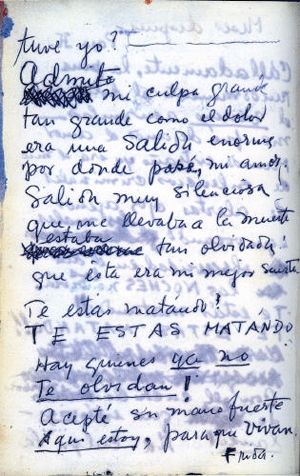 tuve yo?
Admito
mi culpa grande
tan grande como el dolor
era una salida enorme
por donde pasé, mi amor.
Salida muy silenciosa
que me llevaba a la muerte
estaba
tan olvidada!
que esta era mi mejor suerte
Te estas matando!
TE ESTAS MATANDO
Hay quienes ya no
Te olvidan!
Acepté su mano fuerte
Aquí estoy, para que vivan.
Frida.